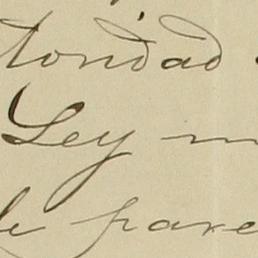 toridad
Ley m
le pare